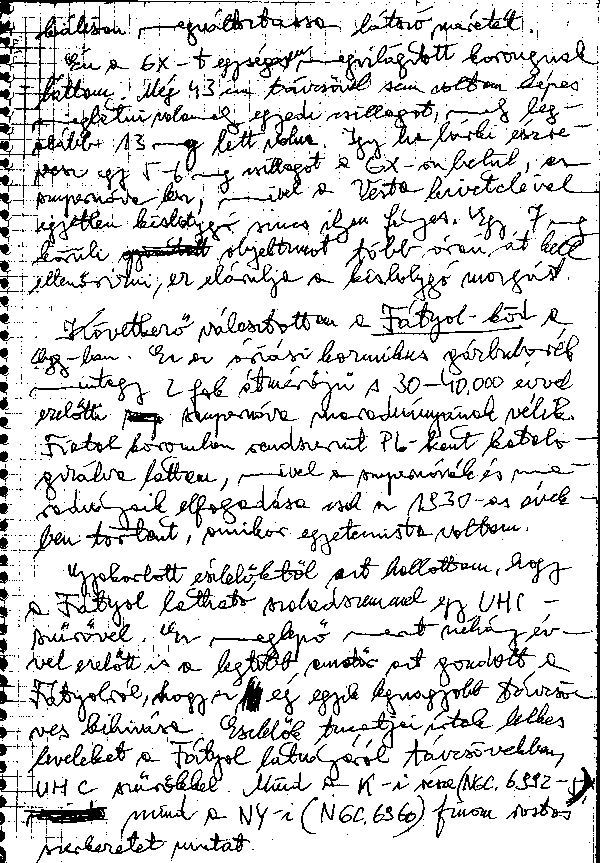 látszó méretét.
Én a GX-t egységesen megvilágított korongnak
láttam. Még 43 cm távcsővel sem voltam képes
meglátni valamely egyedi csillagot, mely leg-
alább 13 mg lett volna. Így ha bárki észre-
vesz egy 5-6 mg csillagot a GX-on belül, az
szupernóva lesz, mivel a Vesta kivételével
egyetlen kisbolygó sincs ilyen fényes. Egy 7 mg
körüli objektumot több órán át kell
ellenőrizni, ez elárulja a kisbolygó mozgást.
Következő választottam a Fátyol-köd a
Cyg-ban. Ez az óriási kozmikus gázbuborék
mintegy 2 fok átmérőjű s 30-40,000 évvel
ezelőtti szupernóva maradványának vélik.
Fiatal koromban rendszerint PL-ként katalo-
gizálva láttam, mivel a szupernóvák és ma-
radványaik elfogadása csak az 1930-as évek-
ben történt, amikor egyetemista voltam.
Gyakorlott észlelőktől azt hallottam, hogy
a Fátyol látható szabadszemmel egy UHC -
szűrővel. Ez meglepő mert néhány év-
vel ezelőtt is a legtöbb amatőr azt gondolt a
Fátyolról, hogy az ég egyik legnagyobb távcsö-
ves kihívása. Észlelők írtak lelkes
leveleket a Fátyol látványáról távcsövekben,
UHC szűrőkkel. Mind a K-i része (NGC. 6992-5)
mind a NY-i (NGC. 6960) finom rostos
szerkezetet mutat.